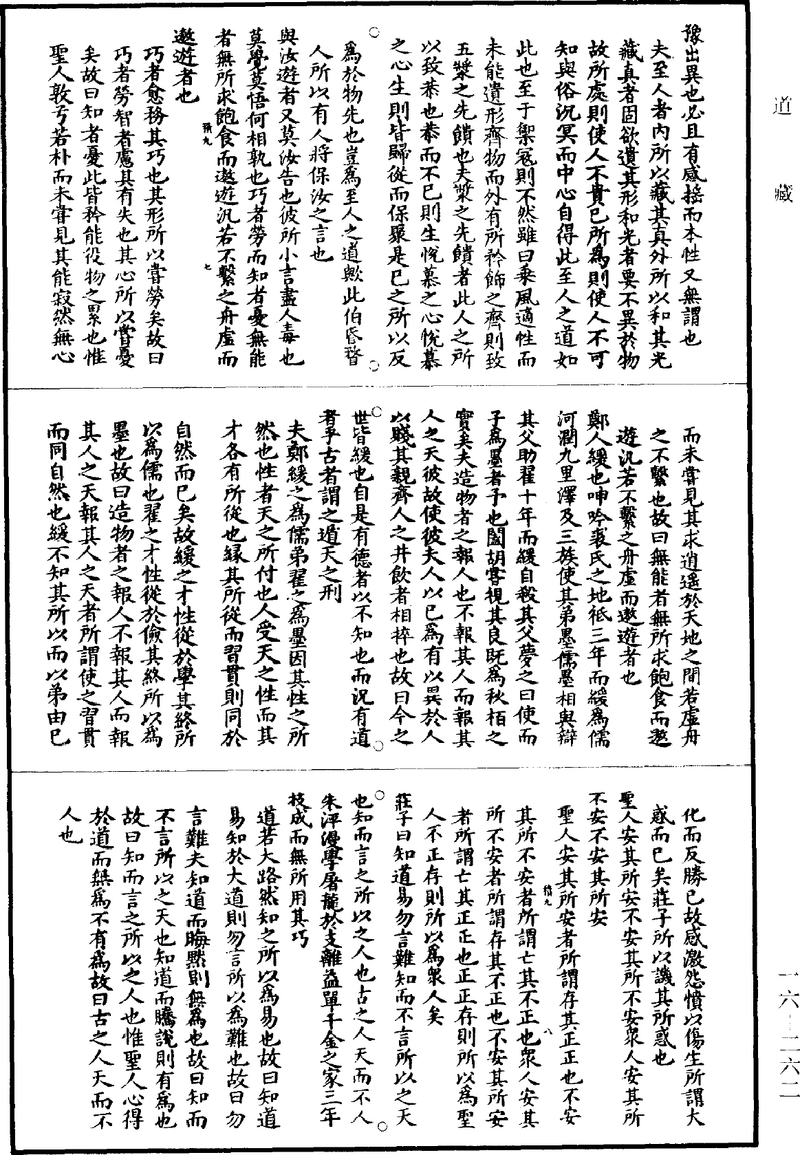 道藏
豫出異也必且有感搖而本性又無謂也
夫至人者內所以藏其真外所以和其光
藏真者固欲遺其形和光者要不異於物
故所處則使人不貴己所為則使人不可
知與俗沉冥而中心自得此至人之道如
此也至于禦寇則不然雖曰乘風適性而
未能遺形齊物而外有所矜飾之齊則致
五漿之先饋也夫漿之先饋者此人之所
以致恭也恭而不已則生悅慕之心悅慕
之心生則皆歸從而保聚是已之所以反
為於物先也豈為至人之道歟此伯昏瞀
人所以有人將保汝之言也
與汝遊者又莫汝告也彼所小言盡人毒也
莫覺莫悟何相孰也巧者勞而知者憂無能
者無所求飽食而遨遊汎若不繫之舟虛而
遨遊者也
巧者愈務其巧也其形所以嘗勞矣故曰
巧者勞智者慮其有失也其心所以嘗憂
矣故曰知者憂此皆矜能役物之累也惟
聖人敦兮若朴而未嘗見其能寂然無心
而未嘗見其求逍遙於天地之間若虛舟
之不繫也故曰無能者無所求飽食而遨
遊汎若不繫之舟虛而遨遊者也
鄭人緩也呻吟裘氏之地祗三年而緩為儒
河潤九里澤及三族使其弟墨儒墨相與辯
其父助翟十年而緩自殺其父夢之曰使而
子為墨者予也闔胡嘗視其良既為秋柏之
實矣夫造物者之報人也不報其人而報其
人之天彼故使彼夫人以己為有以異於人
以賤其親齊人之井飲者相捽也故曰今之
世皆緩也自是有德者以不知也而況有道
者乎古者謂之遁天之刑
夫鄭緩之為儒弟翟之為墨因其性之所
然也性者天之所付也人受天之性而其
才各有所從也緣其所從而習貫則同於
自然而已矣故緩之才性從於學其終所
以為儒也翟之才性從於儉其終所以為
墨也故曰造物者之報人不報其人而報
其人之天報其人之天者所謂使之習貫
而同自然也緩不知其所以而以弟由己
化而反勝己故感激怨憤以傷生所謂大
惑而已矣莊子所以譏其所惑也
聖人安其所安不安其所不安眾人安其所
不安不安其所安
聖人安其所安者所謂存其正正也不安
其所不安者所謂亡其不正也眾人安其
所不安者所謂存其不正也不安其所安
者所謂亡其正正也正正存則所以為聖
人不正存則所以為眾人矣
莊子曰知道易勿言難知而不言所以之天
也知而言之所以之人也古之人天而不人
朱泙漫學屠龍於支離益單千金之家三年
技成而無所用其巧
道若大路然知之所以為易也故曰知道
易知於大道則勿言所以為難也故曰勿
言難夫知道而晦默則無為也故曰知而
不言所以之天也知道而騰說則有為也
故曰知而言之所以之人也惟聖人心得
於道而無為不有為故曰古之人天而不
人也
一六—二六二